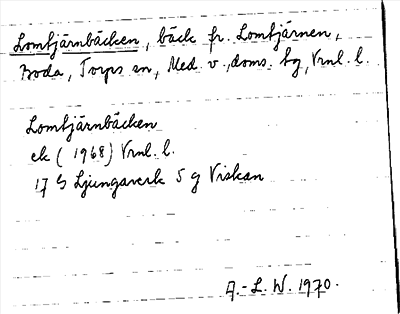 Lomtjärnbäcken, bäck fr. Lomtjärnen,
Boda, Torps sn, Med. v., doms. hg, Vrnl. l.
Lomtjärnbäcken
ek (1968) Vrnl. l.
17 G Ljungaverk 5 g Viskan
A.-L. W. 1970.